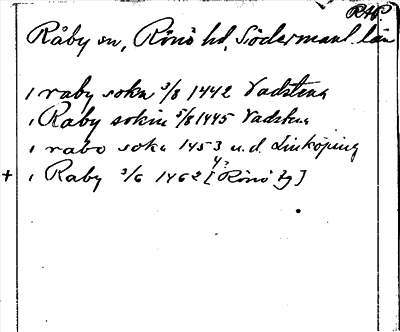 RA?
Råby sn, Rönö hd, Södermanl. län
i raby sokn 3/8 1442 Vadstena
i Raby sokin 5/8 1445 Vadstena
i rabo sokn 1453 u.d. Linköping
+ i Raby 3/6 1462 [Rönö hd]